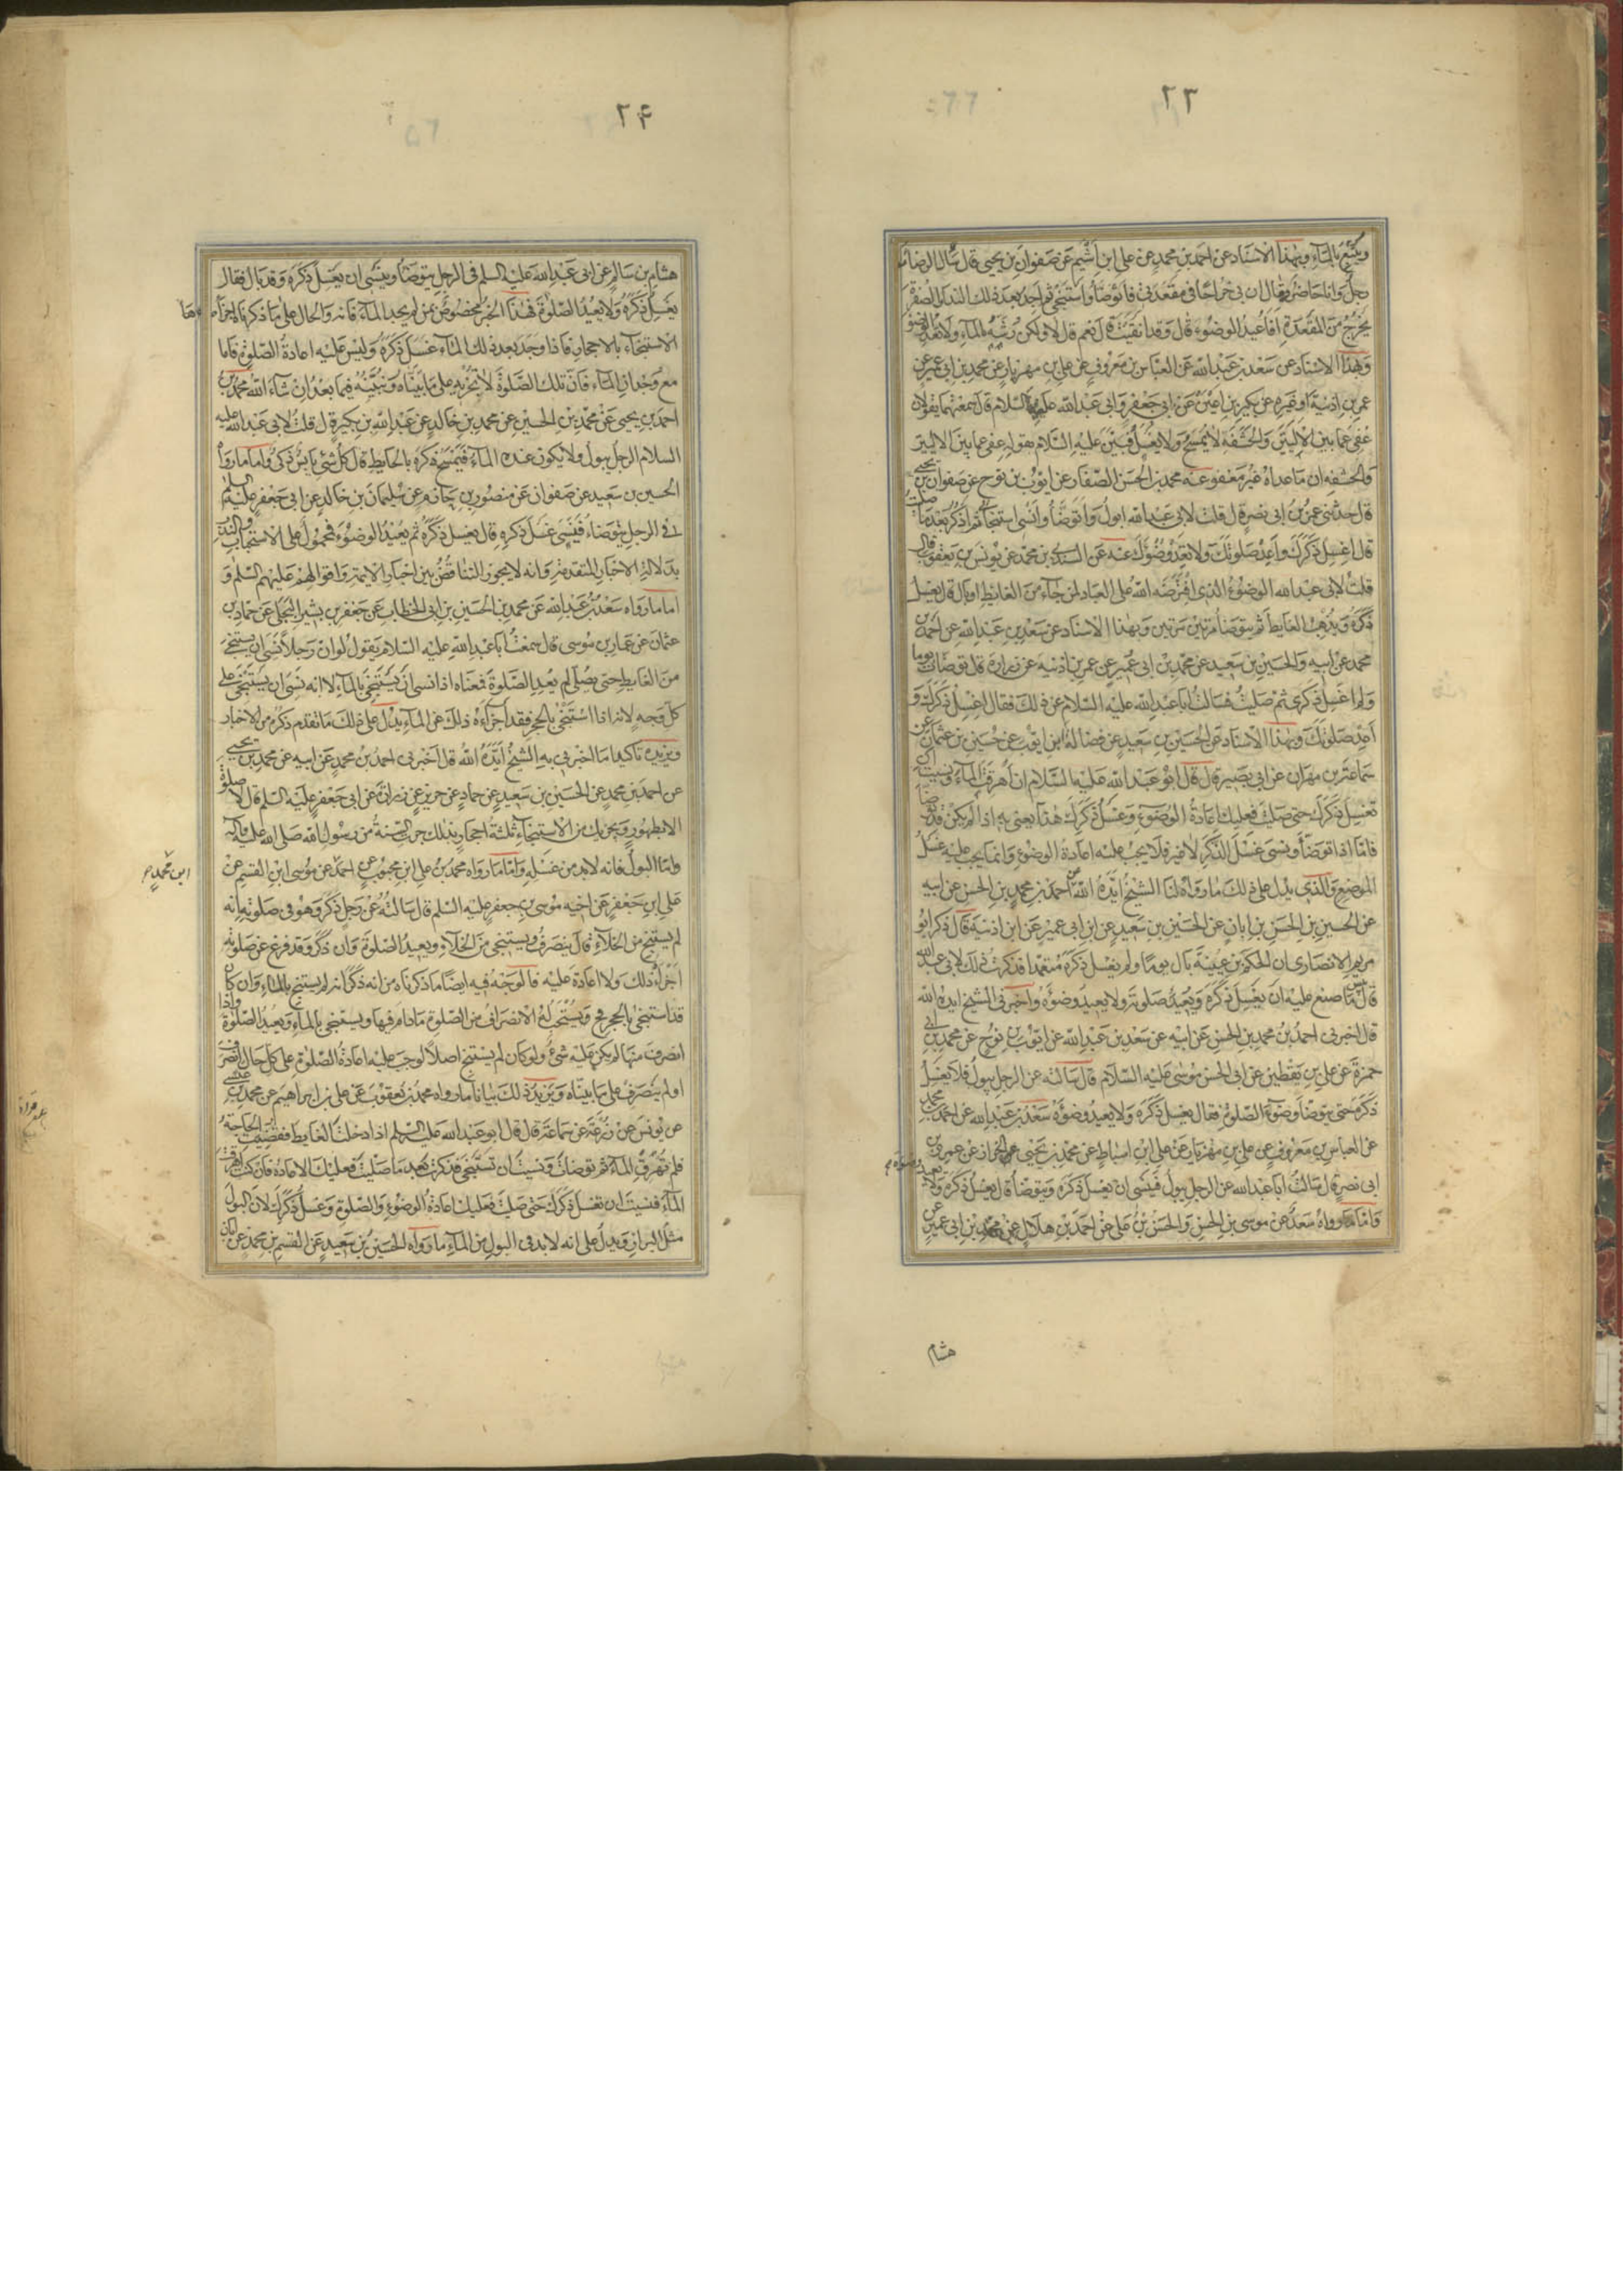 ٢٣
ويتبع بالماء وبهذا الاسناد عن احمد بن محمد عن علي ابن اشيم عن صفوان بن يحيى قال سال الرضا
رجل وانا حاضر فقال ان بي خراجا في مقعدتي فاتوضأ واستنجي ثم اجد بعد ذلك الندا والصفرة
يخرج من المقعدة افاعيد الوضوء قال وقد انقيت قال نعم قال لا ولكن رشه بالماء ولا تعد الوضوء
وبهذا الاسناد عن سعد بن عبد الله عن العباس بن معروف عن علي بن مهزيار عن محمد بن ابي عمير عن
عمر بن اذينة او غيره عن بكير بن اعين عن ابي جعفر وابي عبد الله عليهما السلام قال سمعتهما يقولان
عفي عما بين الاليتين والحشفة لا يمسح ولا يغسل فبين عليه السلام بقوله عفي عما بين الاليتين
والحشفة ان ما عداه غير معفو عنه محمد بن الحسن الصفار عن ايوب بن نوح عن صفوان بن يحيى
قال حدثني عمرو بن ابي نصر قال قلت لابي عبد الله ابول واتوضأ وانسى استنجائي ثم اذكر بعد ما صليت
قال اغسل ذكرك واعد صلوتك ولا تعد وضوئك عنه عن السندي بن محمد عن يونس بن يعقوب قال
قلت لابي عبد الله الوضوء الذي افترضه الله على العباد لمن جاء من الغايط او بال قال يغسل
ذكره ويذهب الغايط ثم يتوضأ مرتين مرتين وبهذا الاسناد عن سعد بن عبد الله عن احمد بن
محمد عن ابيه والحسين بن سعيد عن محمد بن ابي عمير عن عمر بن اذينه عن زرارة قال توضأت يوما
ولم اغسل ذكري ثم صليت فسالت ابا عبد الله عليه السلام عن ذلك فقال اغسل ذكرك و
اعد صلوتك وبهذا الاسناد عن الحسين بن سعيد عن فضالة ابن ايوب عن حسين بن عثمان عن
سماعة بن مهران عن ابي بصير قال قال ابو عبد الله عليه السلام ان اهرقت الماء ونسيت ان
تغسل ذكرك حتى صليت فعليك اعادة الوضوء وغسل ذكرك هذا يعني به اذا لم يكن قد توضا
فاما اذا توضأ ونسى غسل الذكر لا غير فلا يجب عليه اعادة الوضوء وانما يجب عليه غسل
الموضع والذي يدل على ذلك ما رواه لنا الشيخ ايده الله عن احمد بن محمد بن الحسن عن ابيه
عن الحسين بن الحسن بن ابان عن الحسين بن سعيد عن ابن ابي عمير عن ابن اذينه قال ذكر ابو
مريم الانصاري ان الحكم بن عيينة بال يوما ولم يغسل ذكره متعمدا فذكرت ذلك لابي عبد الله
قال بئس ما صنع عليه ان يغسل ذكره ويعيد صلوته ولا يعيد وضوئه واخبرني الشيخ ايده الله
قال اخبرني احمد بن محمد بن الحسن عن ابيه عن سعد بن عبد الله عن ايوب بن نوح عن محمد بن ابي
حمزة عن علي بن يقطين عن ابي الحسن موسى عليه السلام قال سالته عن الرجل يبول فلا يغسل
ذكره حتى يتوضأ وضوء الصلوة فقال يغسل ذكره ولا يعيد وضوئه سعد بن عبد الله عن احمد بن محمد
عن العباس بن معروف عن علي بن مهزيار عن علي ابن اسباط عن محمد بن يحيى الخزاز عن عمرو بن
ابي نصر قال سالت ابا عبد الله عن الرجل يبول فينسى ان يغسل ذكره ويتوضأ قال يغسل ذكره ولا يعيد
وضوءه
واما ما رواه سعد عن موسى بن الحسن والحسن بن علي عن احمد بن هلال عن محمد بن ابي عمير عن
هشام
٢٤
هشام بن سالم عن ابي عبد الله عليه السلم في الرجل يتوضأ وينسى ان يغسل ذكره وقد بال فقال
يغسل ذكره ولا يعيد الصلوة فهذا الخبر مخصوص بمن لم يجد الماء فانه والحال على ما ذكرناه اجزأه
الاستنجاء بالاحجار فاذا وجد بعد ذلك الماء غسل ذكره وليس عليه اعادة الصلوة فاما
مع وجدان الماء فان تلك الصلوة لا تجزيه على ما بيناه ونبينه فيما بعد ان شاء الله محمد بن
احمد بن يحيى عن محمد بن الحسين عن محمد بن خالد عن عبد الله بن بكير قال قلت لابي عبد الله عليه
السلام الرجل يبول ولا يكون عنده الماء فيمسح ذكره بالحايط قال كل شئ يابس ذكي واما ما رواه
الحسين بن سعيد عن صفوان عن منصور بن حازم عن سليمان بن خالد عن ابي جعفر عليه السلم
في الرجل يتوضاء فينسى غسل ذكره قال يغسل ذكره ثم يعيد الوضوء فمحمول على الاستحباب والندب
بدلالة الاخبار المتقدمة وانه لا يجوز التناقض بين اخبار الايمة واقوالهم عليهم السلم و
اما ما رواه سعد بن عبد الله عن محمد بن الحسين بن ابي الخطاب عن جعفر بن بشير البجلي عن حماد بن
عثمان عن عمار بن موسى قال سمعت ابا عبد الله عليه السلام يقول لو ان رجلا نسى ان يستنجي
من الغايط حتى يصلي لم يعد الصلوة فمعناه اذا نسى ان يستنجي بالماء لا انه نسى ان يستنجي على
كل وجه لانه اذا استنجى بالحجر فقد اجزاءه ذلك عن الماء يدل على ذلك ما تقدم ذكره من الاخبار
ويزيده تاكيدا ما اخبرني به الشيخ ايده الله قال اخبرني احمد بن محمد عن ابيه عن محمد بن يحيى
عن احمد بن محمد عن الحسين بن سعيد عن حماد عن حريز عن زرارة عن ابي جعفر عليه السلم قال لا صلوة
الا بطهور ويجزيك من الاستنجاء ثلثة احجار بذلك جرت السنة من رسول الله صلى الله عليه وآله
واما البول فانه لابد من غسله واما ما رواه محمد بن علي ابن محبوب عن احمد عن موسى ابن القسم عن
ابن محمد
علي ابن جعفر عن اخيه موسى بن جعفر عليه السلم قال سالته عن رجل ذكر وهو في صلوته انه
لم يستنج من الخلاء قال ينصرف ويستنجي من الخلاء ويعيد الصلوة وان ذكر وقد فرغ من صلوته
اجزأه ذلك ولا اعادة عليه فالوجه فيه ايضا ما ذكرناه من انه ذكر انه لم يستنج بالماء وان كان
قد استنجى بالحجر فح يستحب له الانصراف من الصلوة ما دام فيها ويستنجي بالماء ويعيد الصلوة واذا
انصرف منها لم يكن عليه شئ ولو كان لم يستنج اصلا لوجب عليه اعادة الصلوة على كل حال انصرف
او لم ينصرف على ما بيناه ويزيد ذلك بيانا ما رواه محمد بن يعقوب عن علي بن ابراهيم عن محمد بن عيسى
عن يونس عن زرعة عن سماعة قال قال ابو عبد الله عليه السلم اذا دخلت الغايط فقضيت الحاجة
فلم تهرق الماء ثم توضأت ونسيت ان تستنجي فذكرت بعد ما صليت فعليك الاعادة فان كنت اهرقت
الماء فنسيت ان تغسل ذكرك حتى صليت فعليك اعادة الوضوء والصلوة وغسل ذكرك لان البول
مثل البراز ويدل على انه لابد في البول من الماء ما رواه الحسين بن سعيد عن القسم بن محمد عن ابان